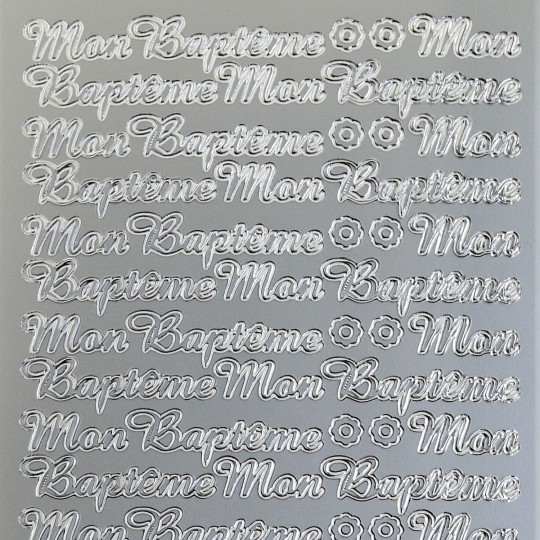 Mon Baptême Mon
Baptême Mon Baptême
Mon Baptême Mon
Baptême Mon Baptême
Mon Baptême Mon
Baptême Mon Baptême
Mon Baptême Mon
Baptême Mon Baptême
Mon Baptême Mon
Baptême Mon Baptême
Mon Baptême Mon